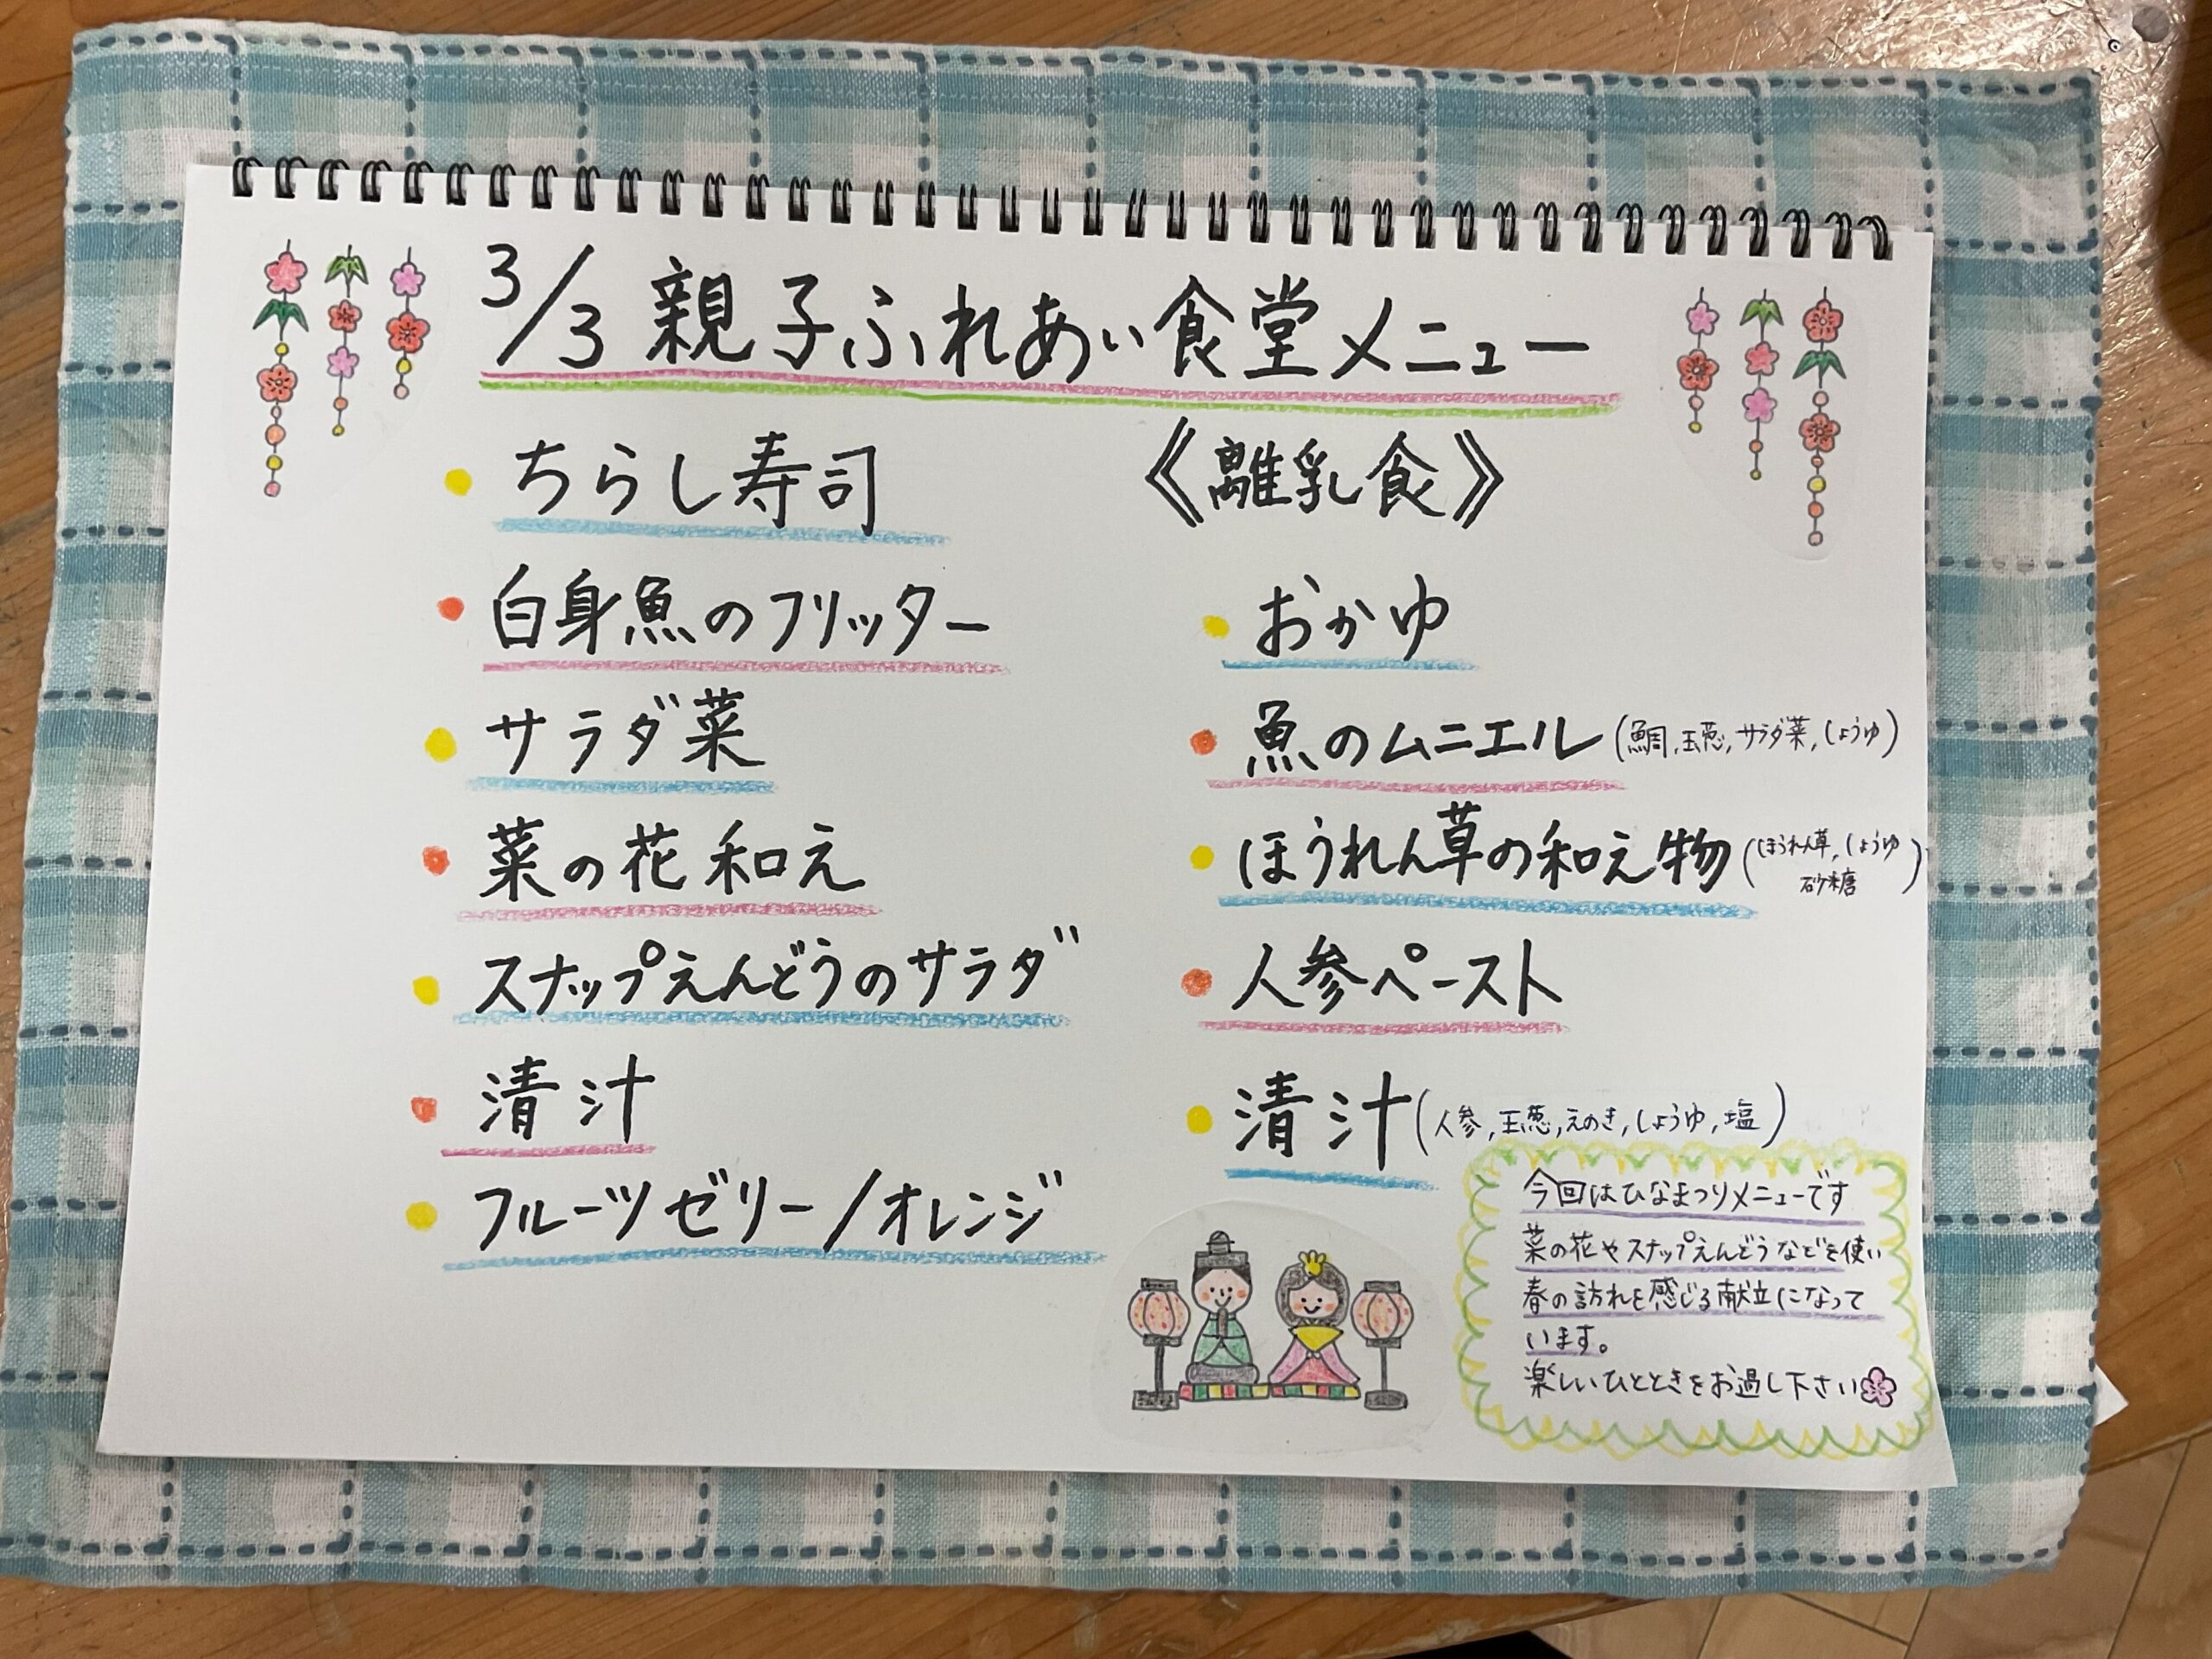 3/3 親子ふれあい食堂メニュー
ちらし寿司
白身魚のフリッター
サラダ菜
菜の花和え
スナップえんどうのサラダ
清汁
フルーツゼリー/オレンジ
《離乳食》
おかゆ
魚のムニエル(鯛,玉葱,サラダ菜,しょうゆ)
ほうれん草の和え物(ほうれん草,しょうゆ
砂糖)
人参ペースト
清汁(人参,玉葱,えのき,しょうゆ,塩)
今回はひなまつりメニューです
菜の花やスナップえんどうなどを使い
春の訪れを感じる献立になって
います。
楽しいひとときをお過し下さい